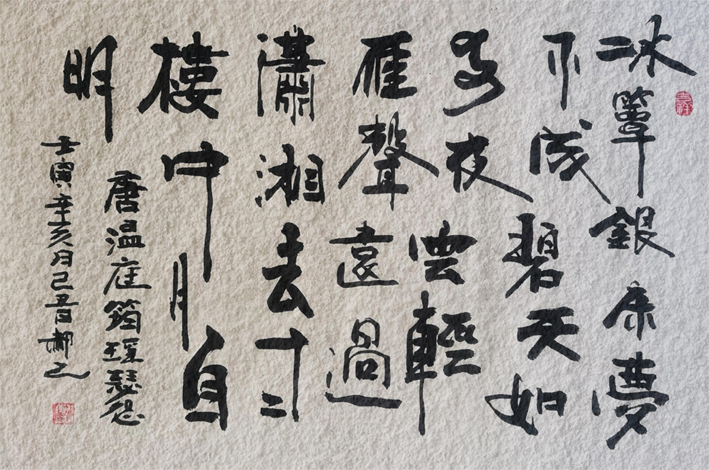 冰簟銀床夢
不成碧天如
水夜雲輕
雁聲遠過
瀟湘去十二
樓中月自
明
唐温庭筠瑤瑟怨
壬寅辛亥月己酉郝